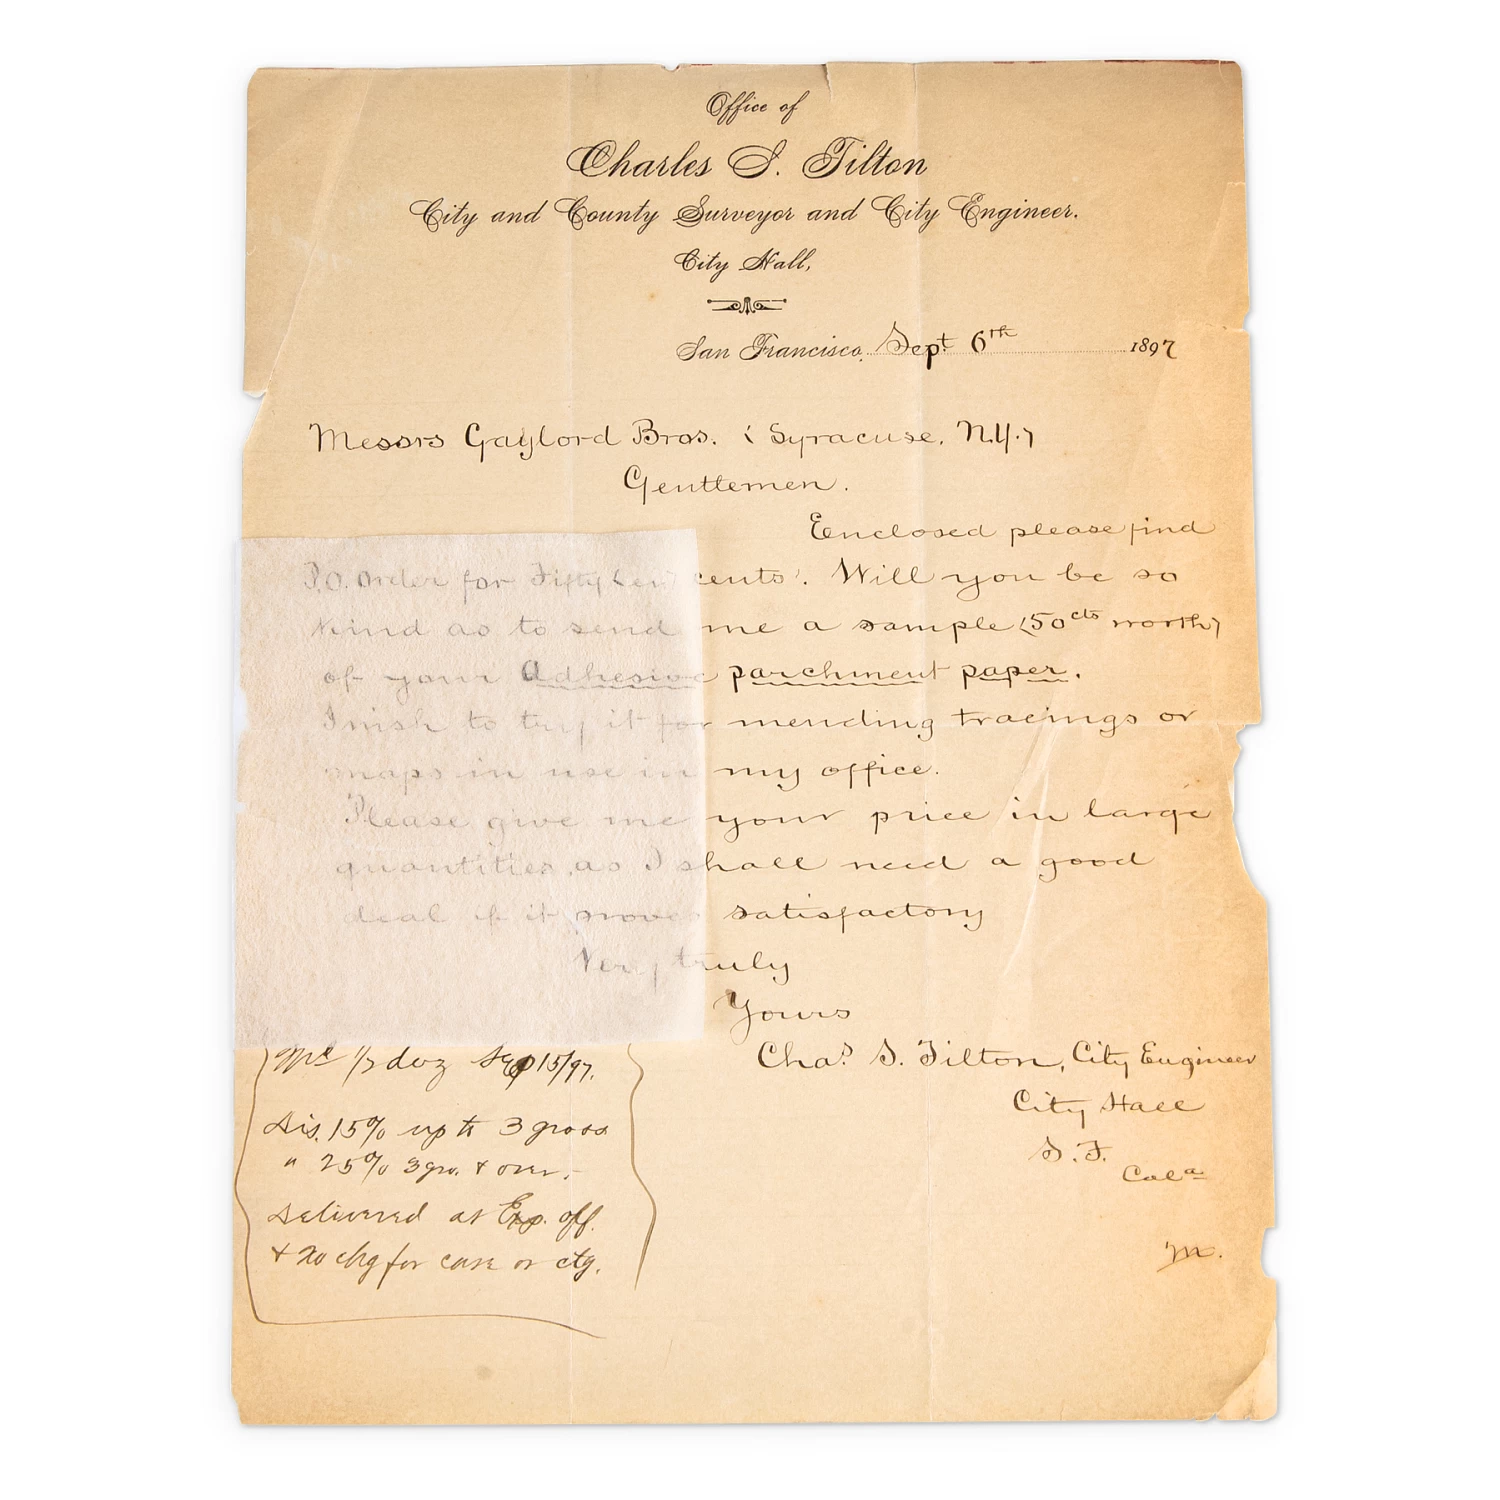 Office of
Charles S. Tilton
City and County Surveyor and City Engineer.
City Hall,
San Francisco, Sept 6th 1897
Messrs Gaylord Bros. (Syracuse, N.Y.)
Gentlemen.
Enclosed please find
P.O. Order for Fifty (cen) cents. Will you be so
kind as to send me a sample (50cts worth)
of your Adhesive parchment paper.
I wish to try it for mending tracings or
maps in use in my office.
Please give me your price in large
quantities, as I shall need a good
deal if it proves satisfactory
Very truly
Yours
Chas S. Tilton, City Engineer
City Hall
S.F.
Cala
M.
1/2 doz Sep 15/97.
Dis. 15% up to 3 gross
" 25% 3 gro. & over.
Delivered at Exp. off.
& no chg for case or ctg.